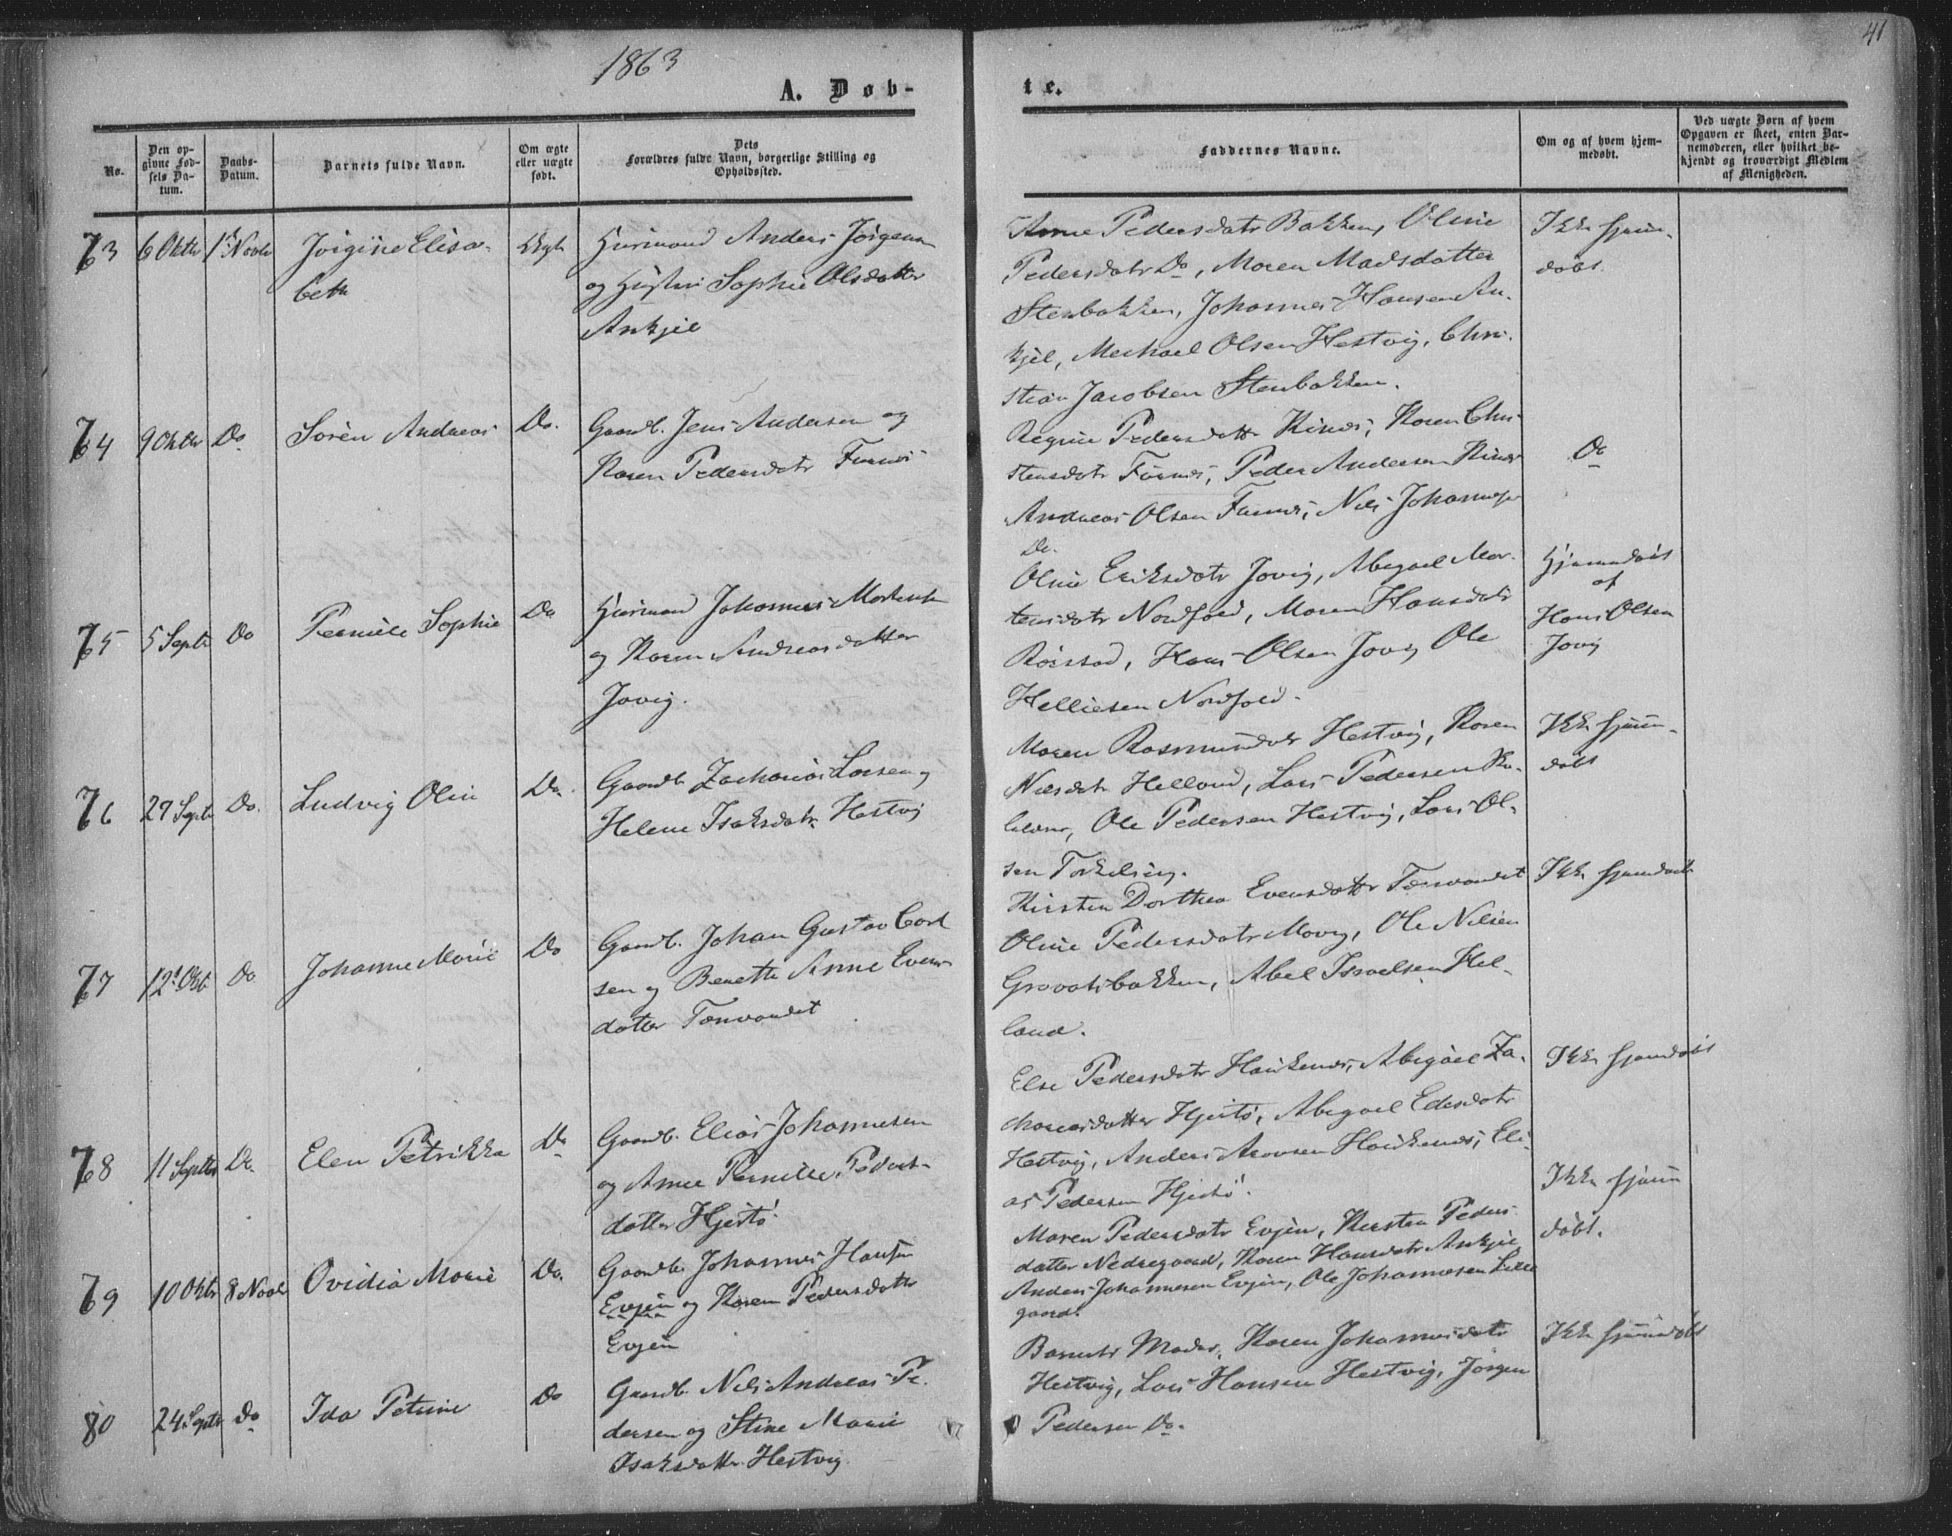 1863
41
A. Døb-
te.
No.
Den op-
givne Fød-
sels Da-
tum.
Daabs-
Datum.
Barnets fulde Navn.
Om ægte
eller uægte
født.
Dets
Forældres fulde Navn, borgerlige Stilling og
Opholdssted.
Faddernes Navne.
Om og af hvem hjem-
medøbt.
Ved uægte Børn af hvem
Opgaven er skeet, enten Bar-
nemoderen, eller hvilket be-
kjendt og troværdigt Medlem
af Menigheden.
73 6 Oktbr 1ste Novbr Jørgine Elisa-
beth
Ægte
Huusmand Anders Jørgensen
og Hustru Sophie Olsdatter
Ankjel
Anne Pedersdatr Bakken, Oline
Pedersdatr Do, Maren Madsdatter
Stenbakken, Johannes Hansen An-
kjel, Mechael Olsen Hestvig, Chri-
stian Jacobsen Stenbakken.
Ikke hjem-
døbt.
74 9 Oktbr Do Sørèn Andreas Do.
Gaardb. Jens Andersen og
Karen Pedersdatr Furnes
Regine Pedersdattr Kines, Karen Chri-
stensdatr Furnes, Peder Andersen Kines
Andreas Olsen Furnes, Nils Johannesen
Do.
Do
75 5 Septbr Do Pernille Sophie Do
Huusmand Johannes Mortensen
og Karen Andreasdatter
Jovig.
Oline Eriksdatr Jovig, Abigael Mor-
tensdatr Nordfold, Maren Hansdatr
Røisstad, Hans Olsen Jovig Ole
Helliesen Nordfold.
Hjemmedøbt
af
Hans Olsen
Jovig
76 27 Septr Do. Ludvig Olai Do.
Gaardb. Zacharias Larsen og
Helene Isaksdatr. Hestvig
Maren Rasmusdatr Hestvig, Karen
Nilsdatr Helland, Lars Pedersen Ka-
lvaa, Ole Pedersen Hestvig, Lars Ol-
sen Torkilseng.
Ikke hjem-
døbt
77 12te Okt. Do Johanne Marie Do
Gaardb. Johan Gustav Carl
sen og Benette Anne Evens-
datter Tørvandet
Kirsten Dorthea Evensdattr Tørvandet
Oline Pedersdatr Movig, Ole Nilsen
Gravatsbakken, Abel Israelsen Hel-
land.
Ikke hjemdøbt
78 11 Septbr Do. Elen Petrikka Do
Gaardb. Elias Johannesen
og Anne Pernille Peders-
datter Hjertø
Else Pedersdatr Haukenes, Abigael Za-
chariasdatter Hjertø, Abigael Edisdatr
Hestvig, Anders Aronsen Haukenes, Eli-
as Pedersen Hjertø.
Ikke hjemdøbt
79 10 Oktr 8 Novbr Ovidia Marie Do.
Gaardb. Johannes Hansen
Evjen og Karen Pedersdatr
Evjen
Maren Pedersdatr Evjen, Kirsten Peders-
datter Nedregaard, Karen Hansdatr Ankjel
Anders Johannesen Evjen, Ole Johannesen Lille
gaard.
Ikke hjem
døbt.
80 24 Septr Do Ida Petrine Do
Gaardb. Nils Andreas Pe-
dersen og Stine Marie
Isaksdattr Hestvig
Barnets Moder, Karen Johannesdatr
Hestvig, Lars Hansen Hestvig, Jørgen
Pedersen Do.
Ikke hjemmedøbt